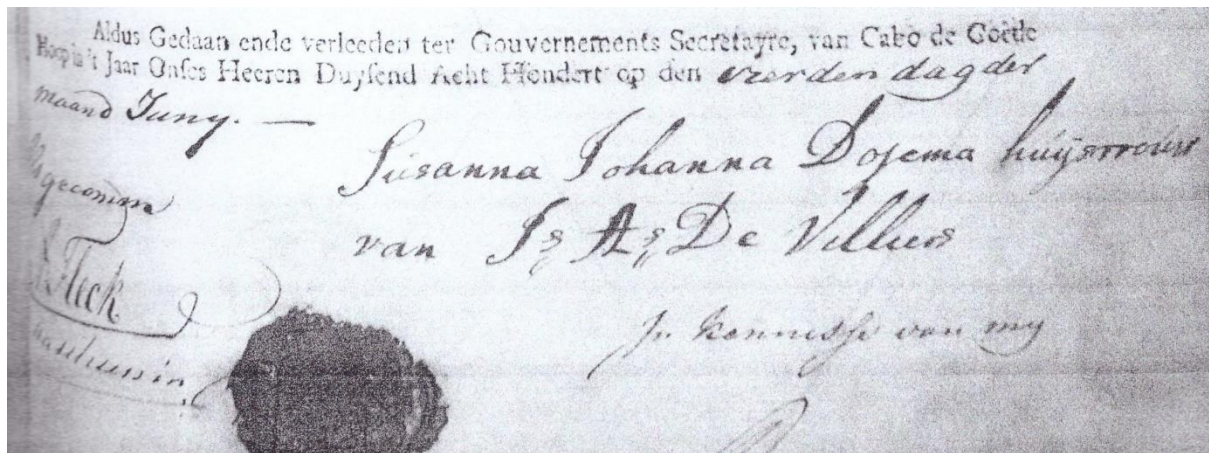 Aldus Gedaan ende verleeden ter Gouvernements Secretayre, van Cabo de Goede
Hoop in 't Jaar Onses Heeren Duysend Acht Hondert op den vierden dag der
maand Juny. —
Susanna Johanna Dojema huijsvrouw
van Js As De Villiers
Als gecomm
Fleck
In kennisse van my